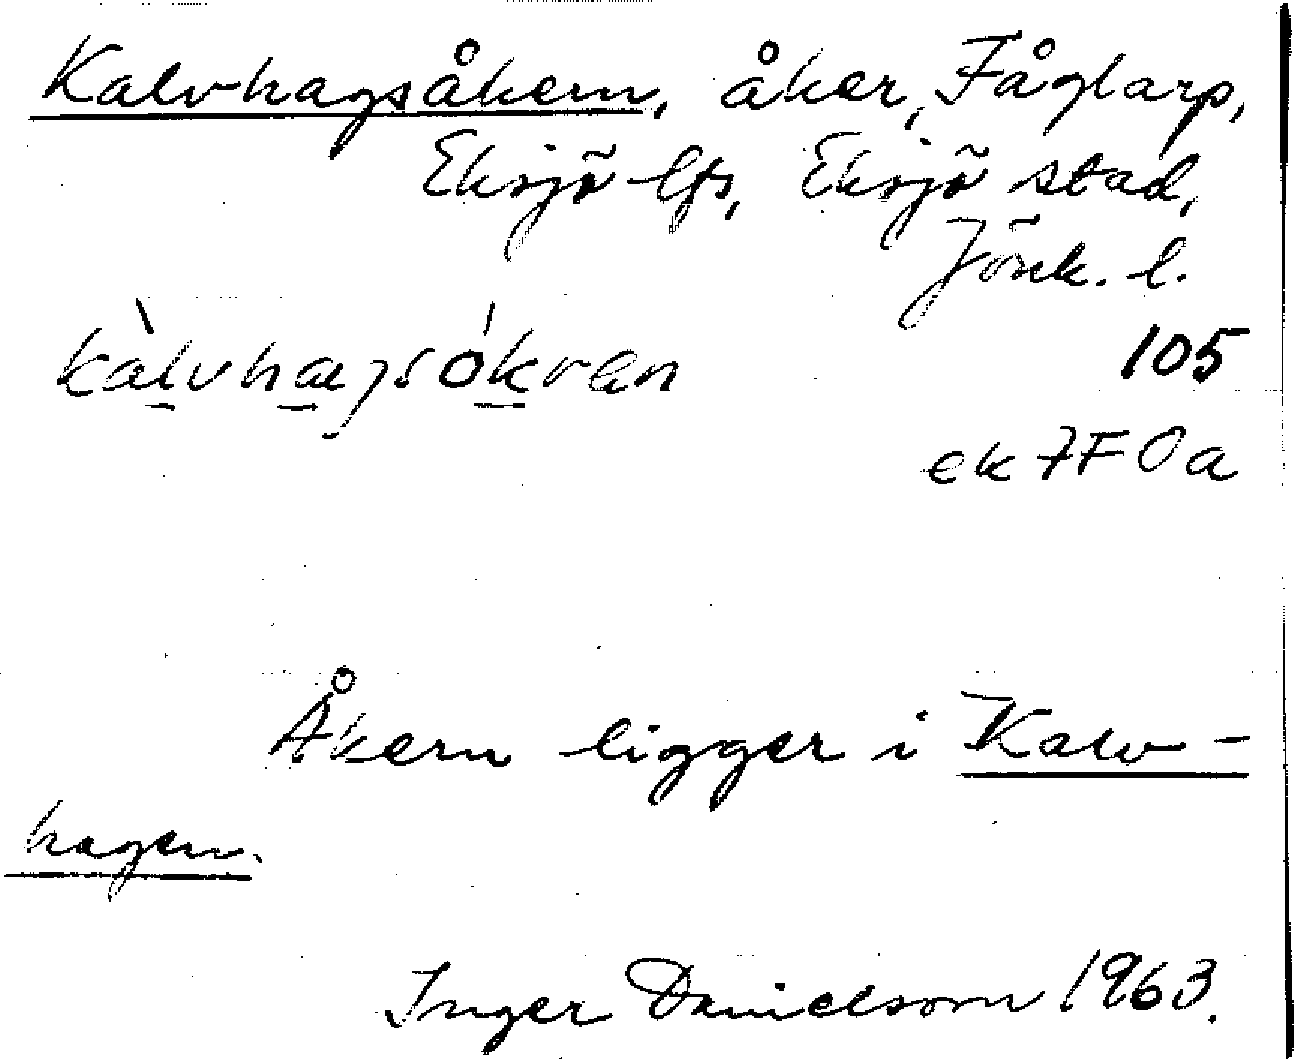 Kalvhagsåkern, åker, Fåglarp,
Eksjö lfs, Eksjö stad,
Jönk. l.
kàlvhagsókran 105
ek 7F0a
Åkern ligger i Kalv-
hagen.
Inger Danielsson 1963.